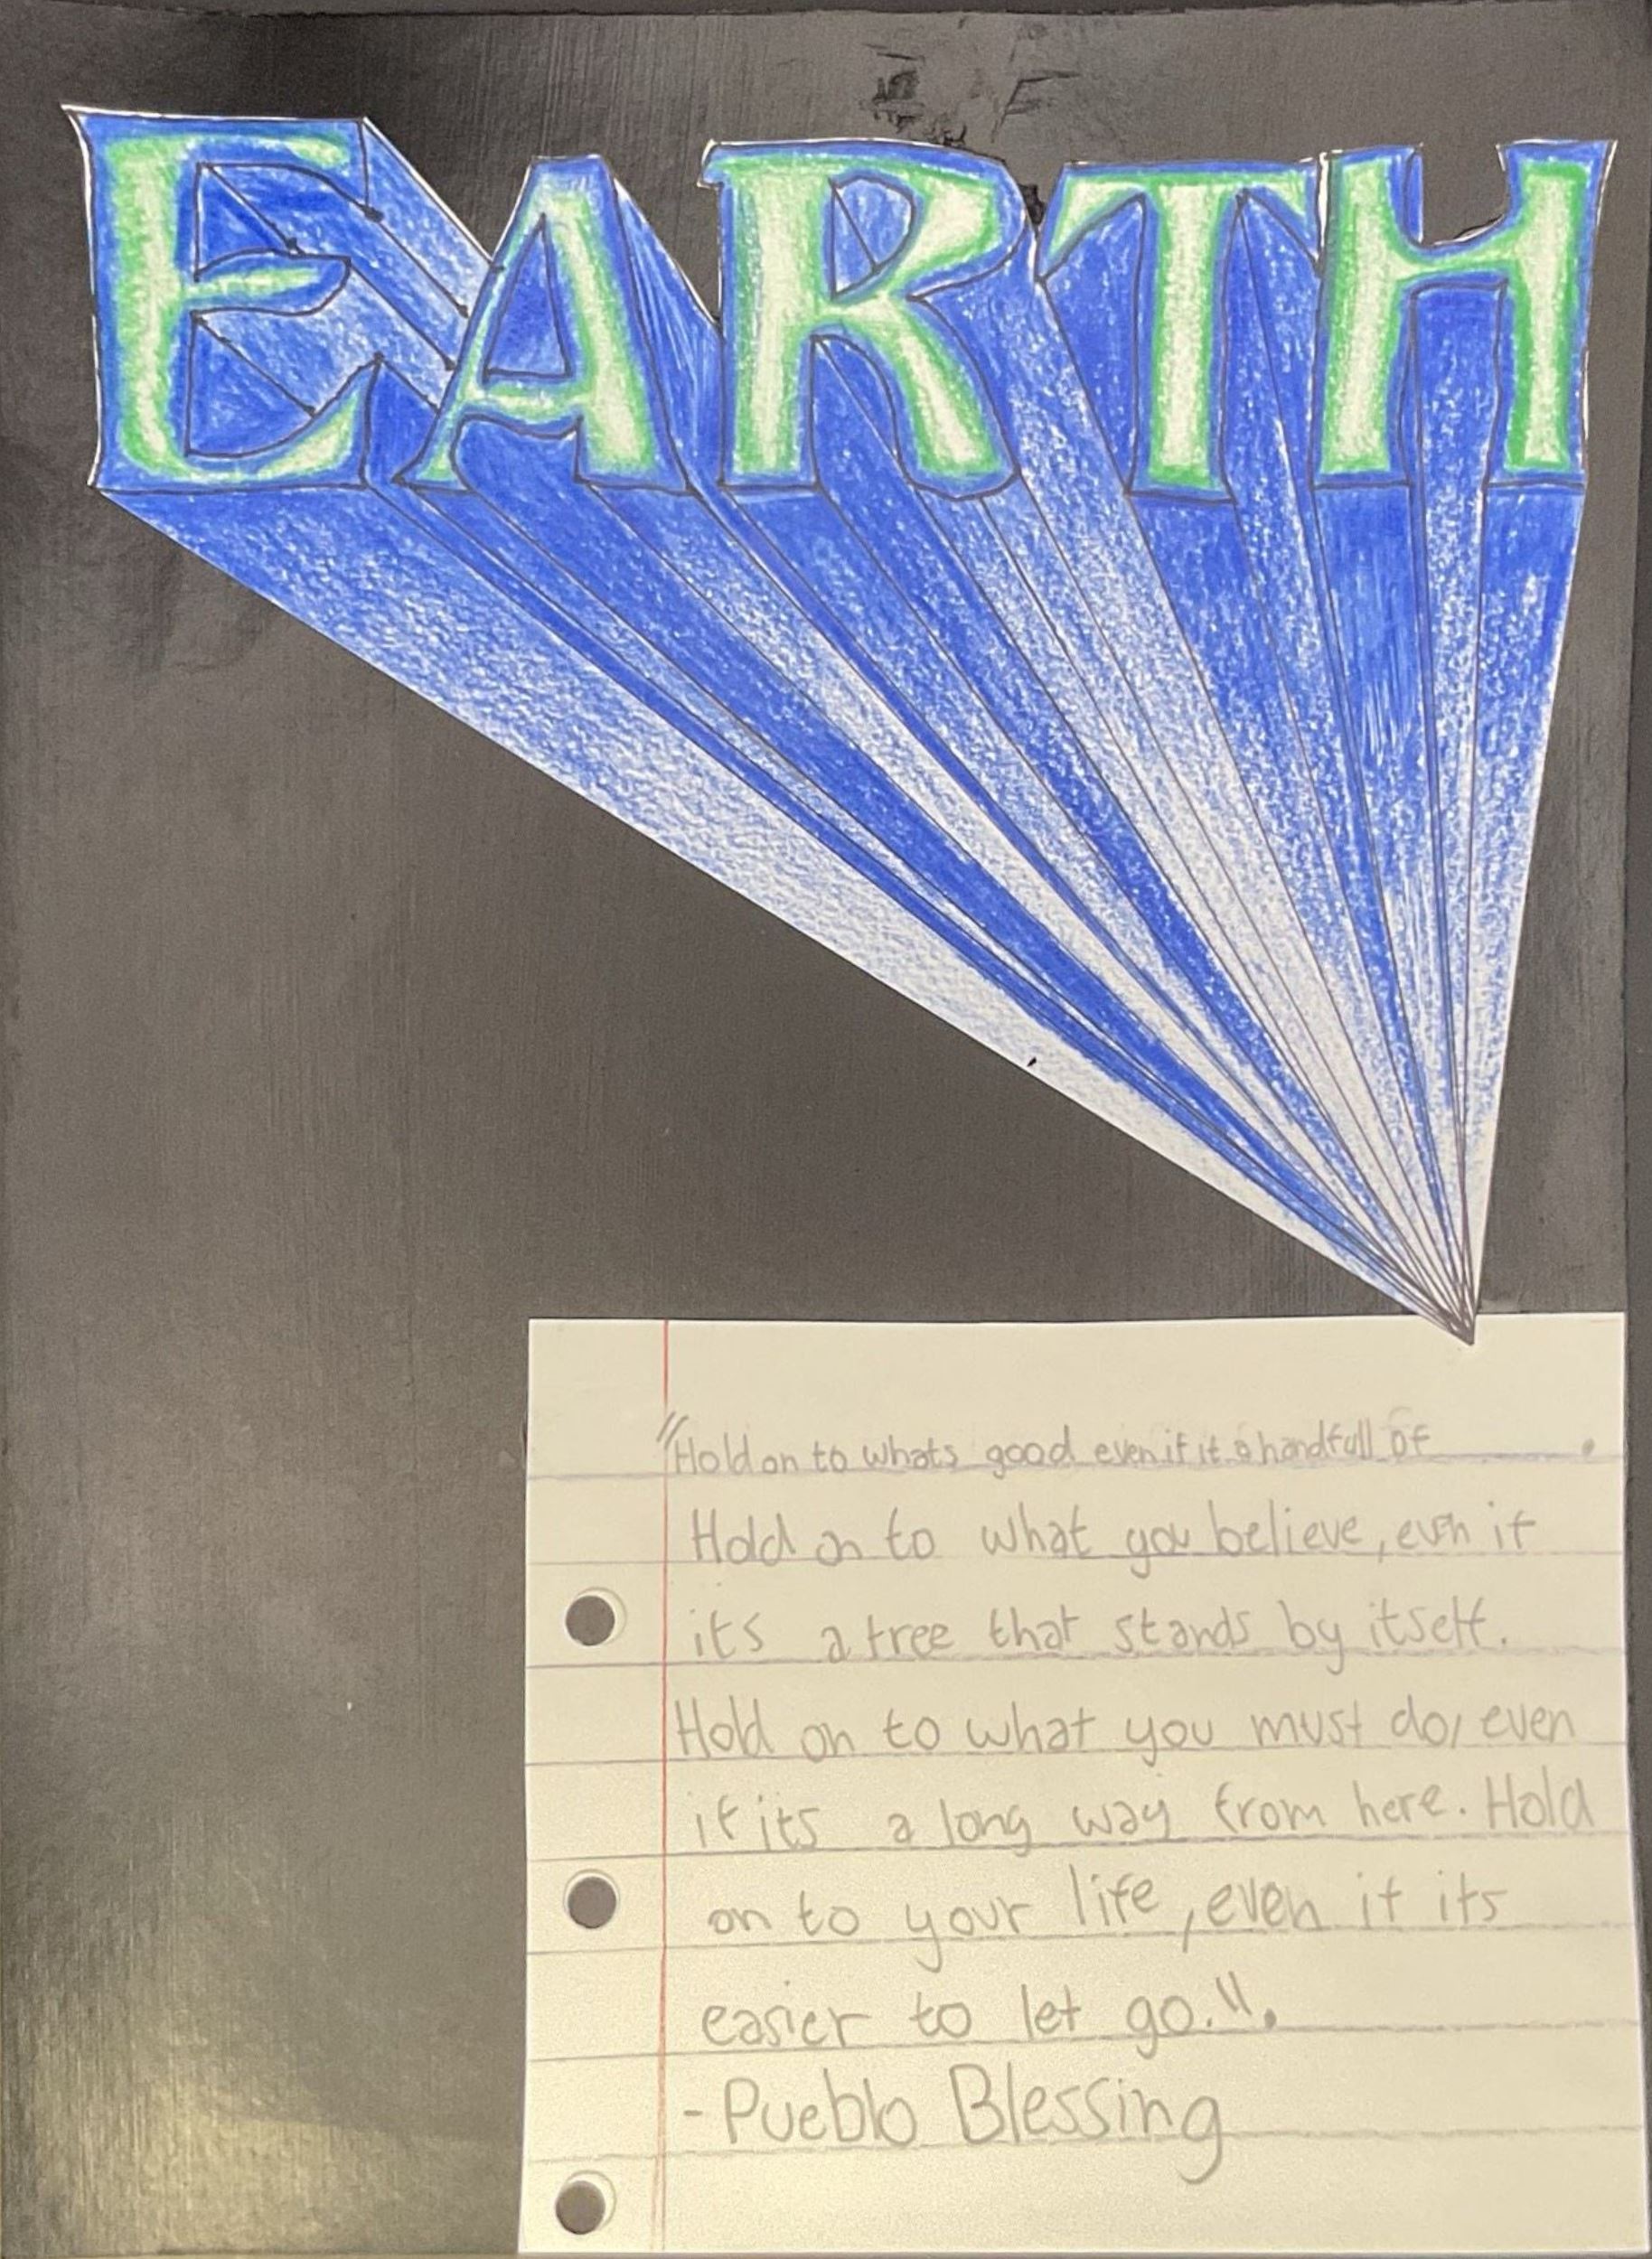 EARTH
"Hold on to whats good even if it a handfull of .
Hold on to what you believe, even if
its a tree that stands by itself.
Hold on to what you must do, even
if its a long way from here. Hold
on to your life, even if its
easier to let go.".
- Pueblo Blessing